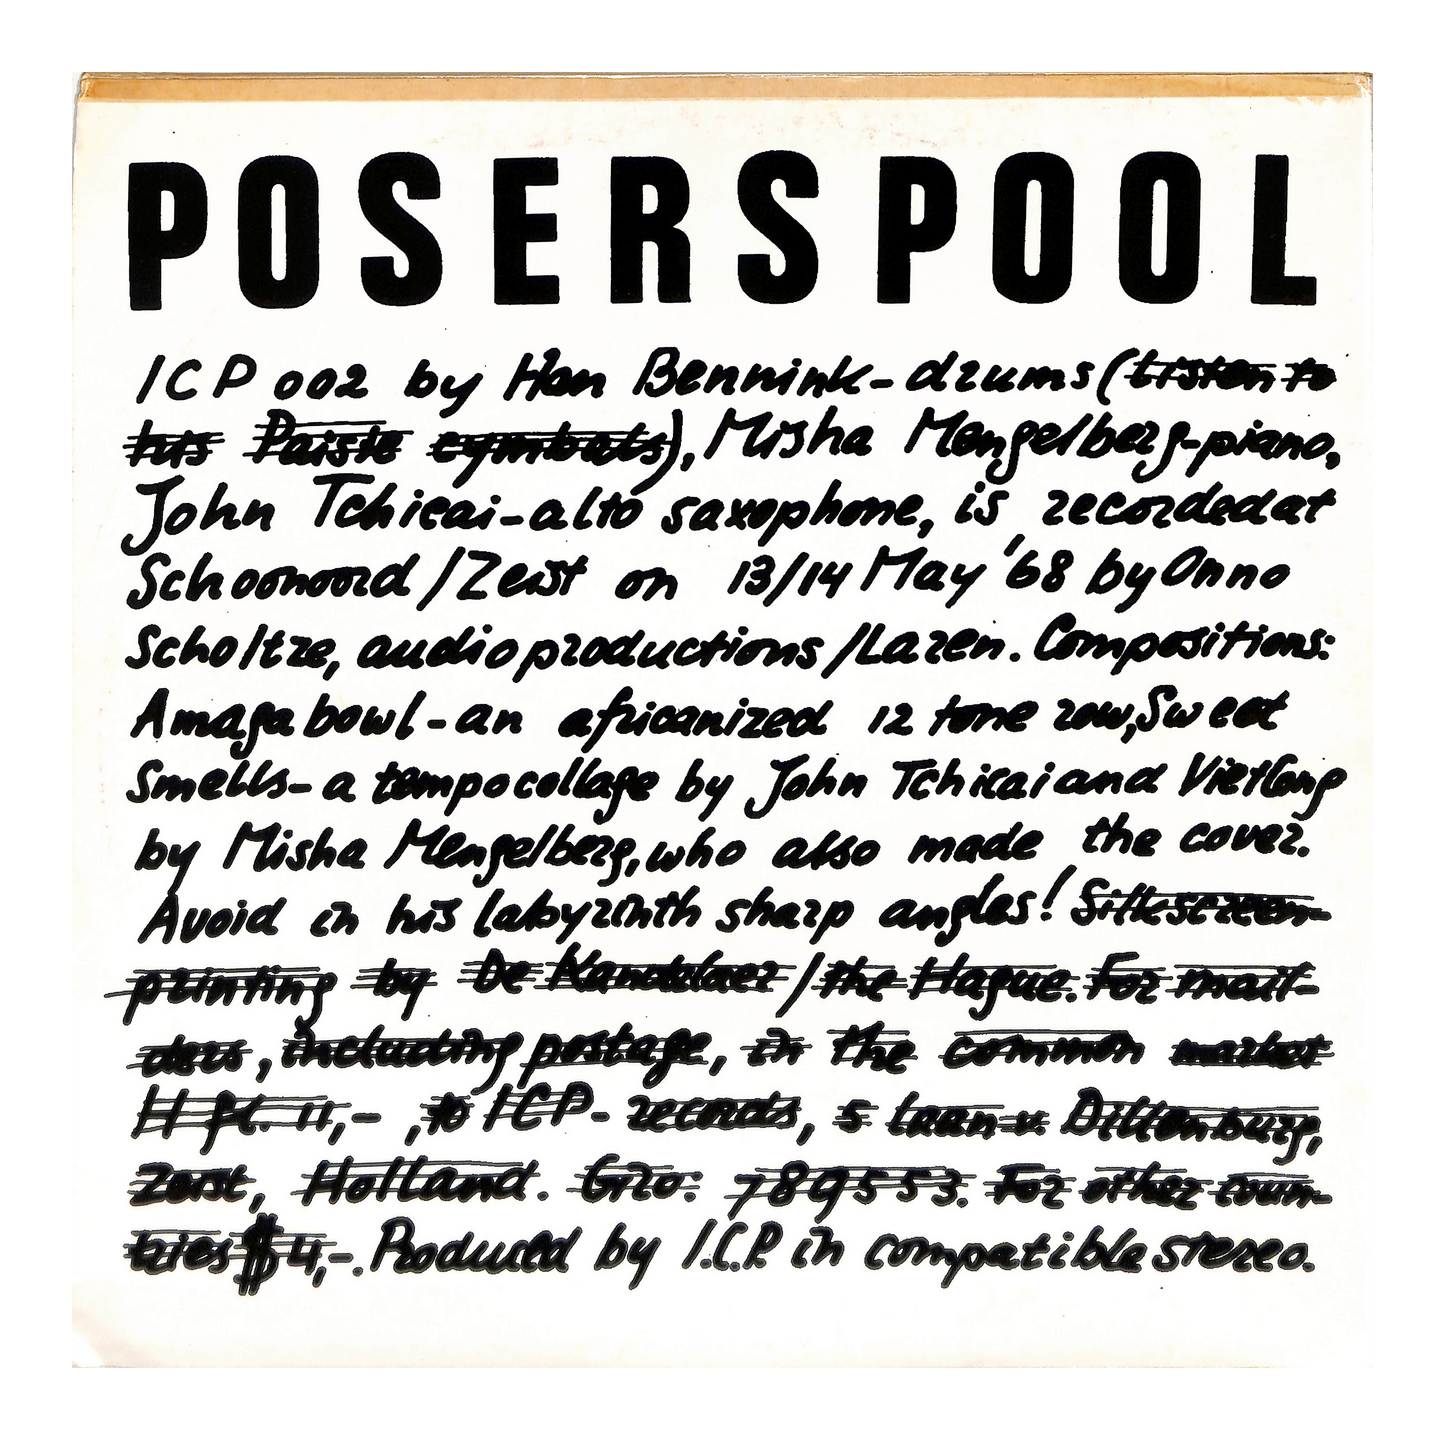 POSERSPOOL
ICP 002 by Han Bennink-drums (Listen to
his Paiste cymbals), Misha Mengelberg-piano,
John Tchicai-alto saxophone, is recorded at
Schoonoord/Zeist on 13/14 May '68 by Onno
Scholtze, audioproductions/Laren. Compositions:
Amagabowl-an africanized 12 tone row, Sweet
Smells-a tempocollage by John Tchicai and Vietcong
by Misha Mengelberg, who also made the cover.
Avoid in his labyrinth sharp angles! Silkscreen-
printing by De Kandelaer/the Hague. For mail-
ders, including postage, in the common market
H fl. 11,- , to ICP-records, 5 laan v. Dillenburg,
Zeist, Holland. Giro: 789553. For other coun-
tries $4,-. Produced by I.C.P. in compatible stereo.